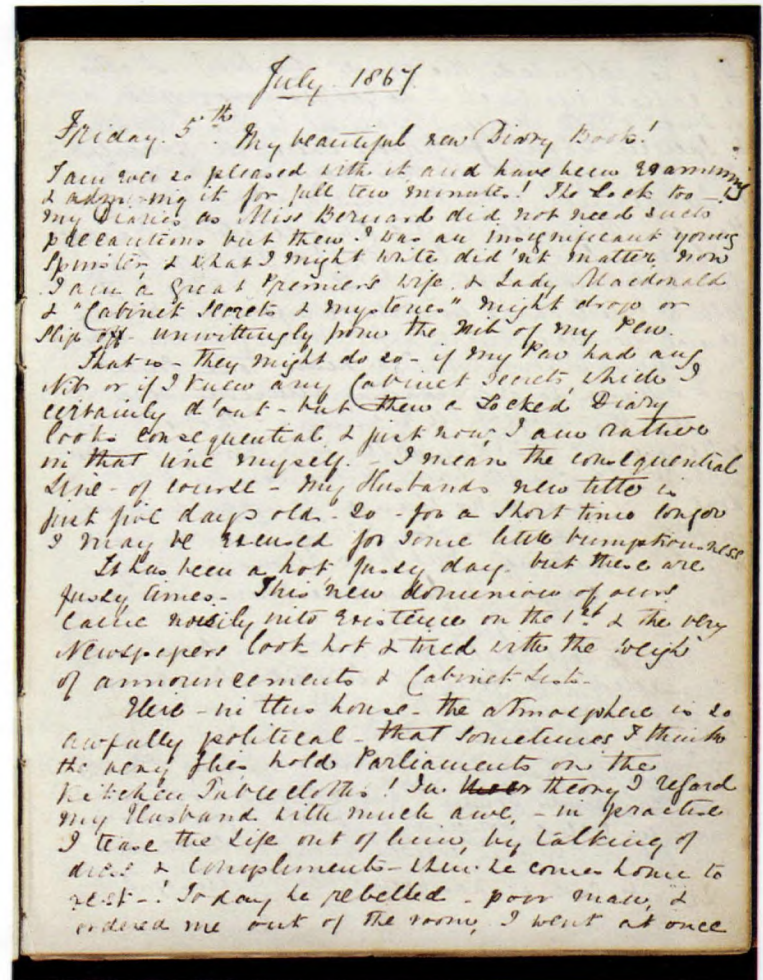 July. 1867.
Friday. 5th. My beautiful new Diary Book!
I am ever so pleased with it and have been examining
& admiring it for full ten minutes! The Lock too -
my Diaries as Miss Bernard did not need such
precautions but then I was an insignificant young
Spinster & what I might write did'nt matter, now
I am a great Premier's wife & Lady Macdonald
& "Cabinet Secrets & mysteries" might drop or
slip off - unwittingly from the Nib of my Pen.
That is - they might do so - if my Pen had any
Nib or if I knew any Cabinet secrets, which I
certainly d'ont - but then a Locked Diary
looks consequential & just now I am rather
in that line myself. - I mean the consequential
Line - of course - My Husbands new title is
just five days old - so - for a short time longer
I may be excused for some little bumptiousness
It has been a hot fussy day but these are
fussy times - This new dominion of ours
came noisily into existence on the 1st & the very
Newspapers look hot & tired with the weight
of announcements & Cabinet Lists -
Here - in this house - the atmosphere is so
awfully political - that sometimes I think
the very flies hold Parliaments on the
Kitchen Tablecloths! In theory I regard
my Husband with much awe, - in practise
I tease the life out of him, by talking of
dress & compliments - when he comes home to
rest -! Today he rebelled - poor man, &
ordered me out of the room, I went at once